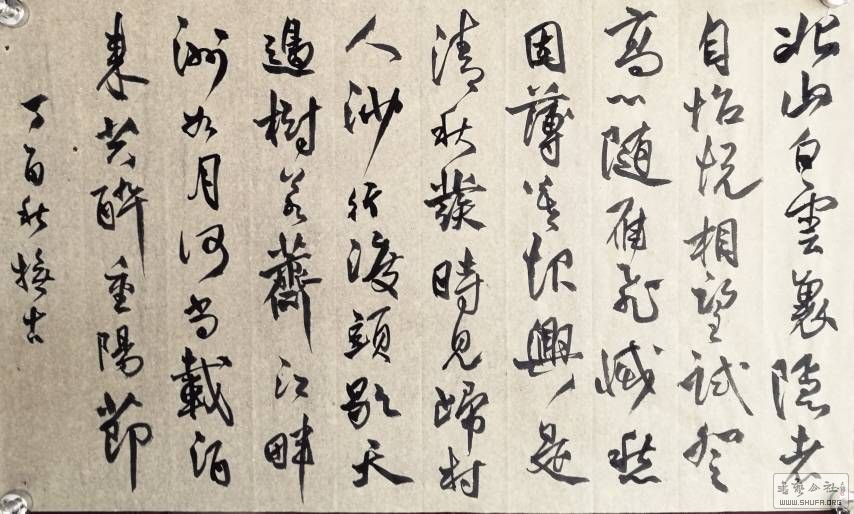 北山白雲裏隱者
自怡悦相望試登
高心随雁飛滅愁
因薄暮起興是
清秋發時見歸村
人沙行渡頭歇天
邊樹若薺江畔
洲如月何当載酒
來共醉重陽節
丁酉秋
WWW.SHUFA.ORG